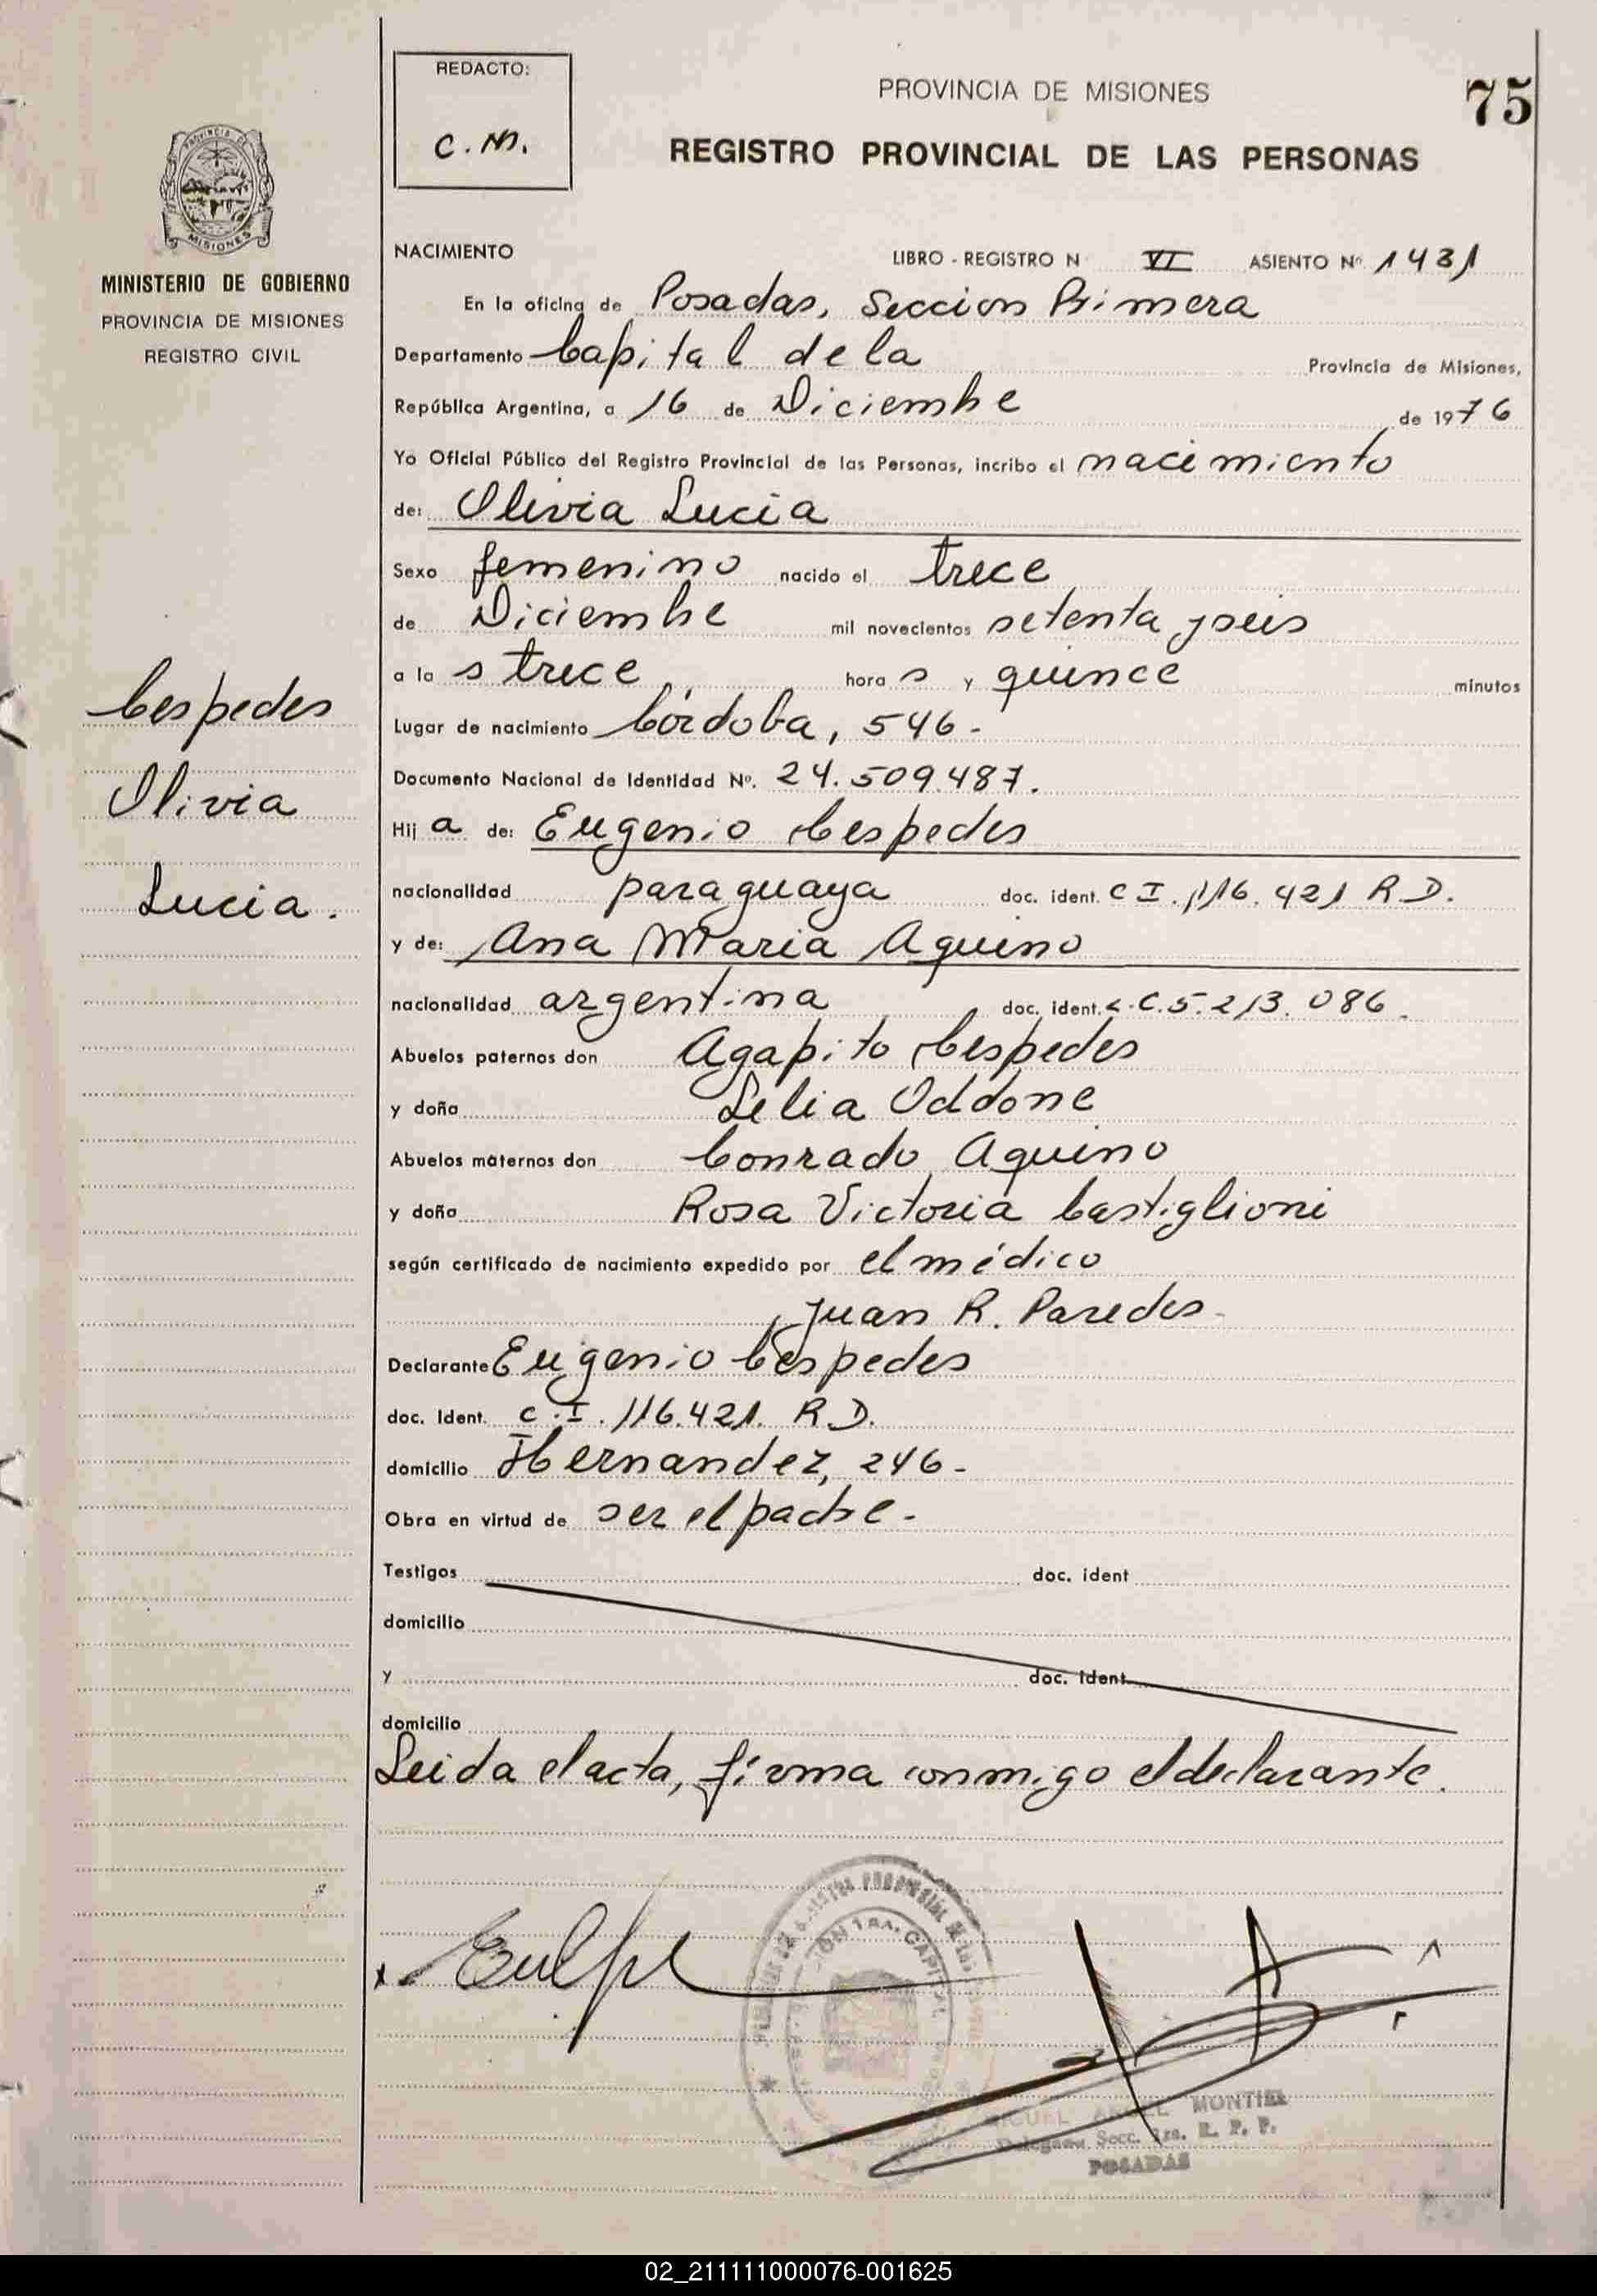 REDACTO:
C. M.
PROVINCIA DE MISIONES
75
REGISTRO PROVINCIAL DE LAS PERSONAS
PROVINCIA DE
MISIONES
MINISTERIO DE GOBIERNO
PROVINCIA DE MISIONES
REGISTRO CIVIL
Cespedes
Olivia
Lucia.
NACIMIENTO LIBRO - REGISTRO N VI ASIENTO Nº 1431
En la oficina de Posadas, Seccion Primera
Departamento Capital de la Provincia de Misiones,
República Argentina, a 16 de Diciembre de 1976
Yo Oficial Público del Registro Provincial de las Personas, incribo el nacimiento
de: Olivia Lucia
Sexo femenino nacido el trece
de Diciembre mil novecientos setenta y seis
a la s trece hora s y quince minutos
Lugar de nacimiento Córdoba, 546-
Documento Nacional de Identidad Nº. 24.509.487.
Hij a de: Eugenio Cespedes
nacionalidad paraguaya doc. ident. C I. 116.421 R D.
y de: Ana Maria Aquino
nacionalidad argentina doc. ident. L.C.5.213.086.
Abuelos paternos don Agapito Cespedes
y doña Lelia Oddone
Abuelos maternos don Conrado Aquino
y doña Rosa Victoria Castiglioni
según certificado de nacimiento expedido por el médico
Juan R. Paredes-
Declarante Eugenio Cespedes
doc. Ident. C.I. 116.421. R D.
domicilio Hernandez, 246-
Obra en virtud de ser el padre-
Testigos doc. ident
domicilio
y doc. ident
domicilio
Leida el acta, firma conmigo el declarante.
CAPITAL
MIGUEL ANGEL MONTIEL
Delegado Secc. 1ra. R. P. P.
POSADAS
02_211111000076-001625